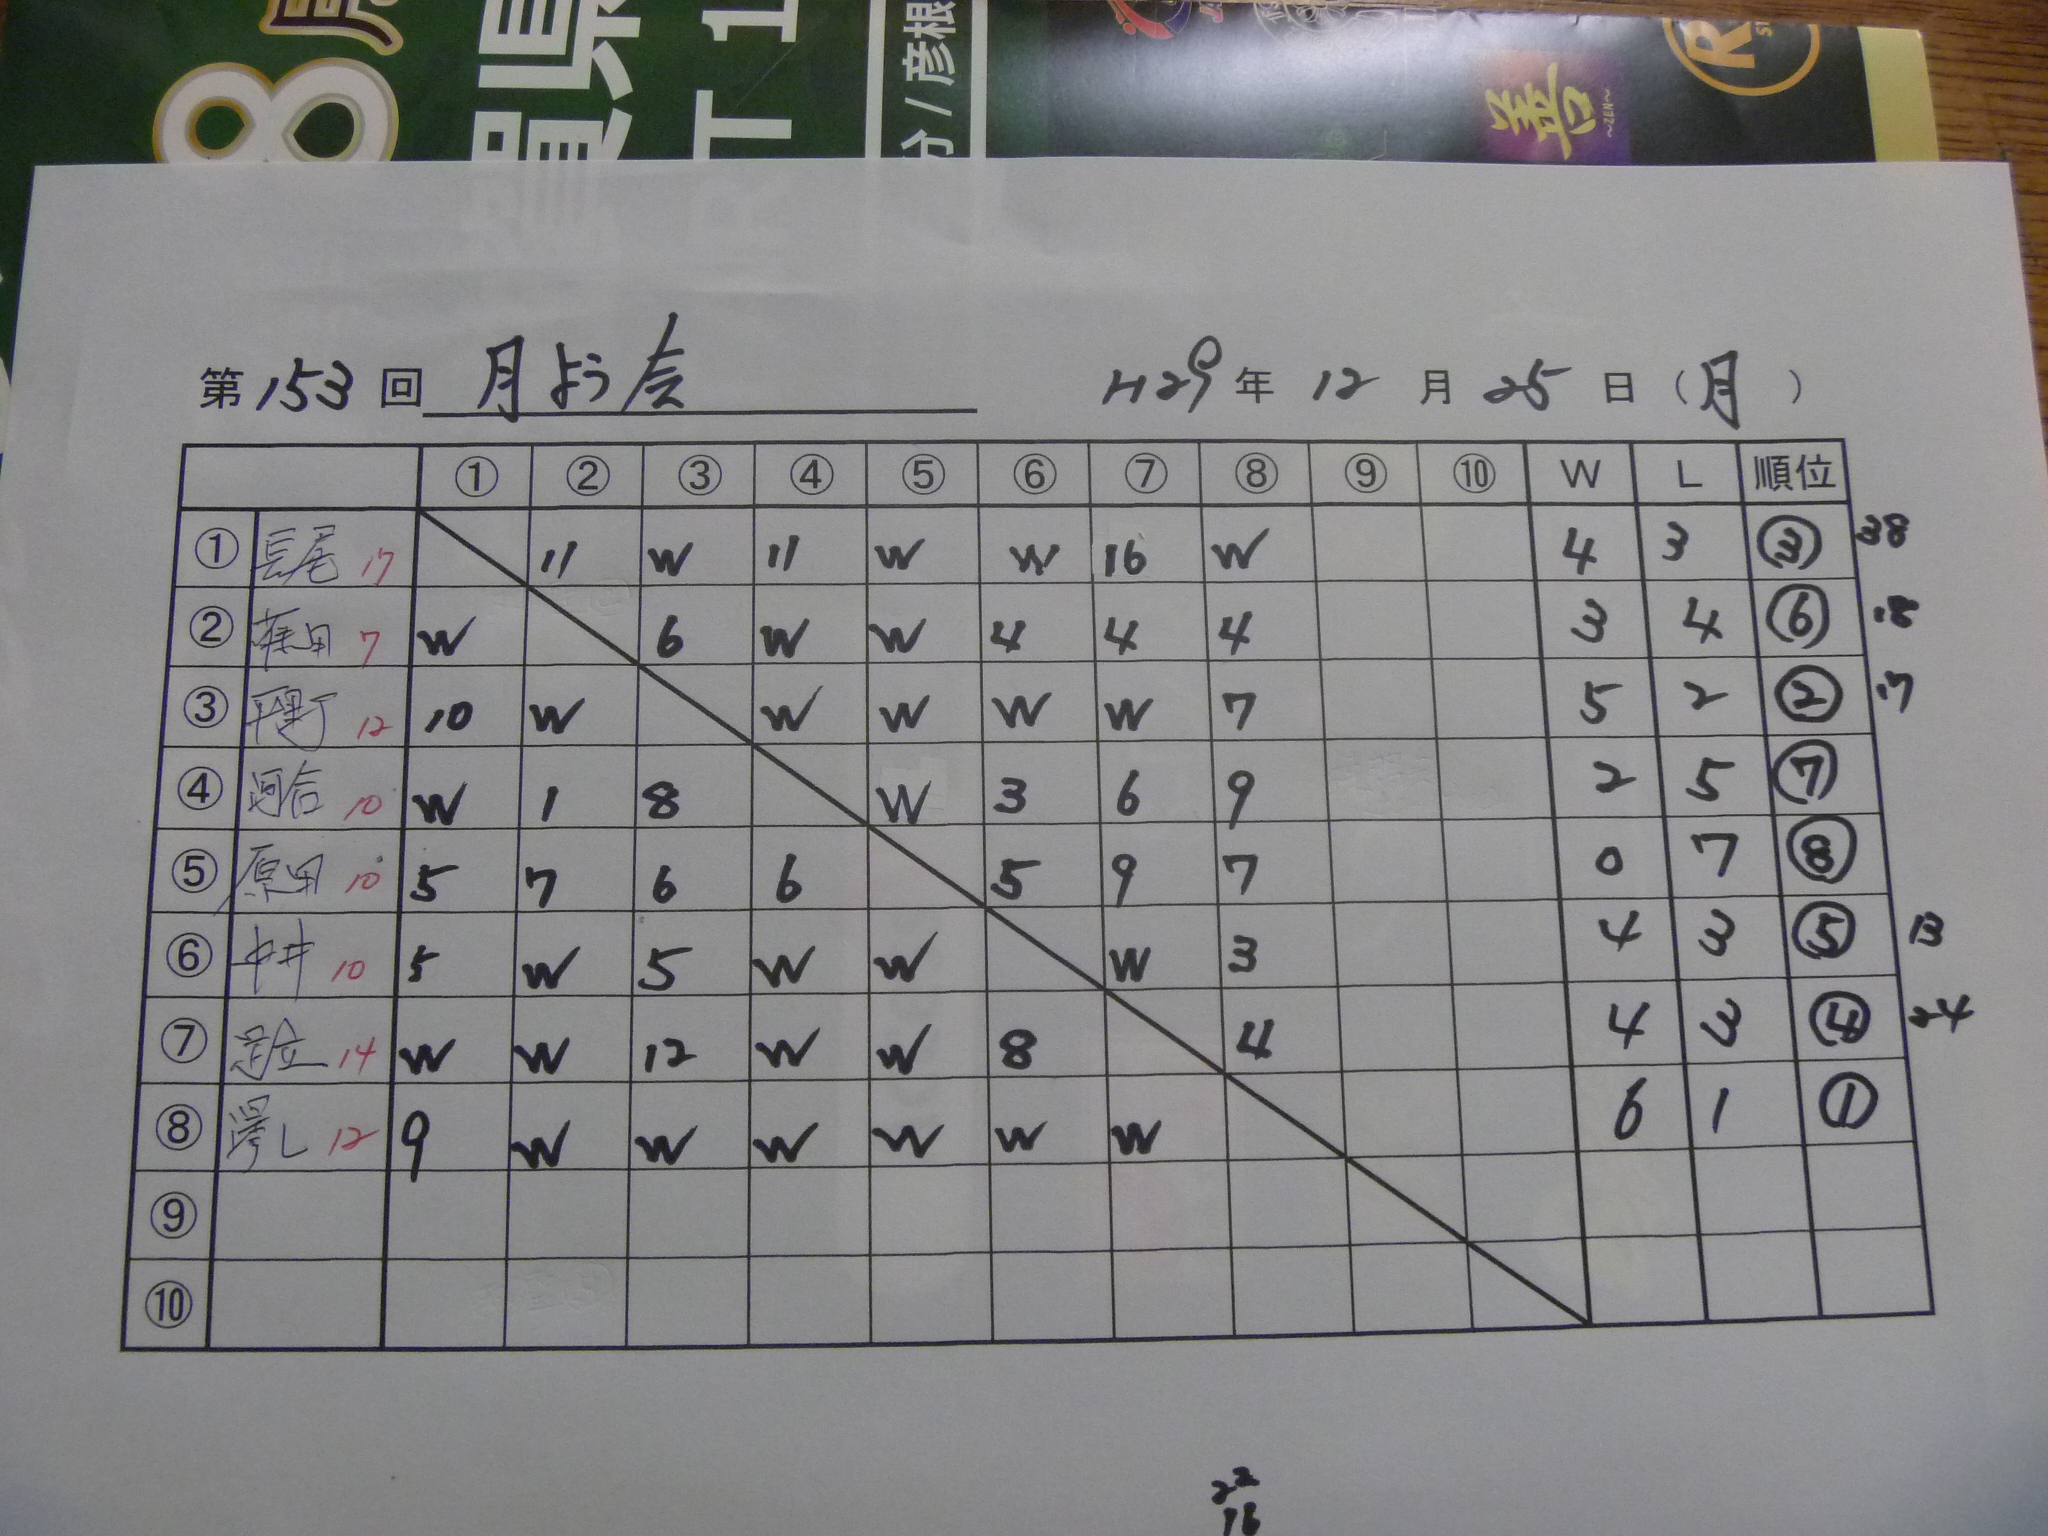 8周
賀県
T 1
分 / 彦根
善
~ZEN~
R
第 153 回 月よう会 H29 年 12 月 25 日 (月)
① ② ③ ④ ⑤ ⑥ ⑦ ⑧ ⑨ ⑩ W L 順位
① 長尾 17 11 W 11 W W 16 W 4 3 ③ 38
② 田 7 W 6 W W 4 4 4 3 4 ⑥ 18
③ 平野 12 10 W W W W W 7 5 2 ② 17
④ 河合 10 W 1 8 W 3 6 9 2 5 ⑦
⑤ 原田 10 5 7 6 6 5 9 7 0 7 ⑧
⑥ 中井 10 5 W 5 W W W 3 4 3 ⑤ 13
⑦ 足立 14 W W 12 W W 8 4 4 3 ④ 24
⑧ 澤し 12 9 W W W W W W 6 1 ①
⑨
⑩
22
16